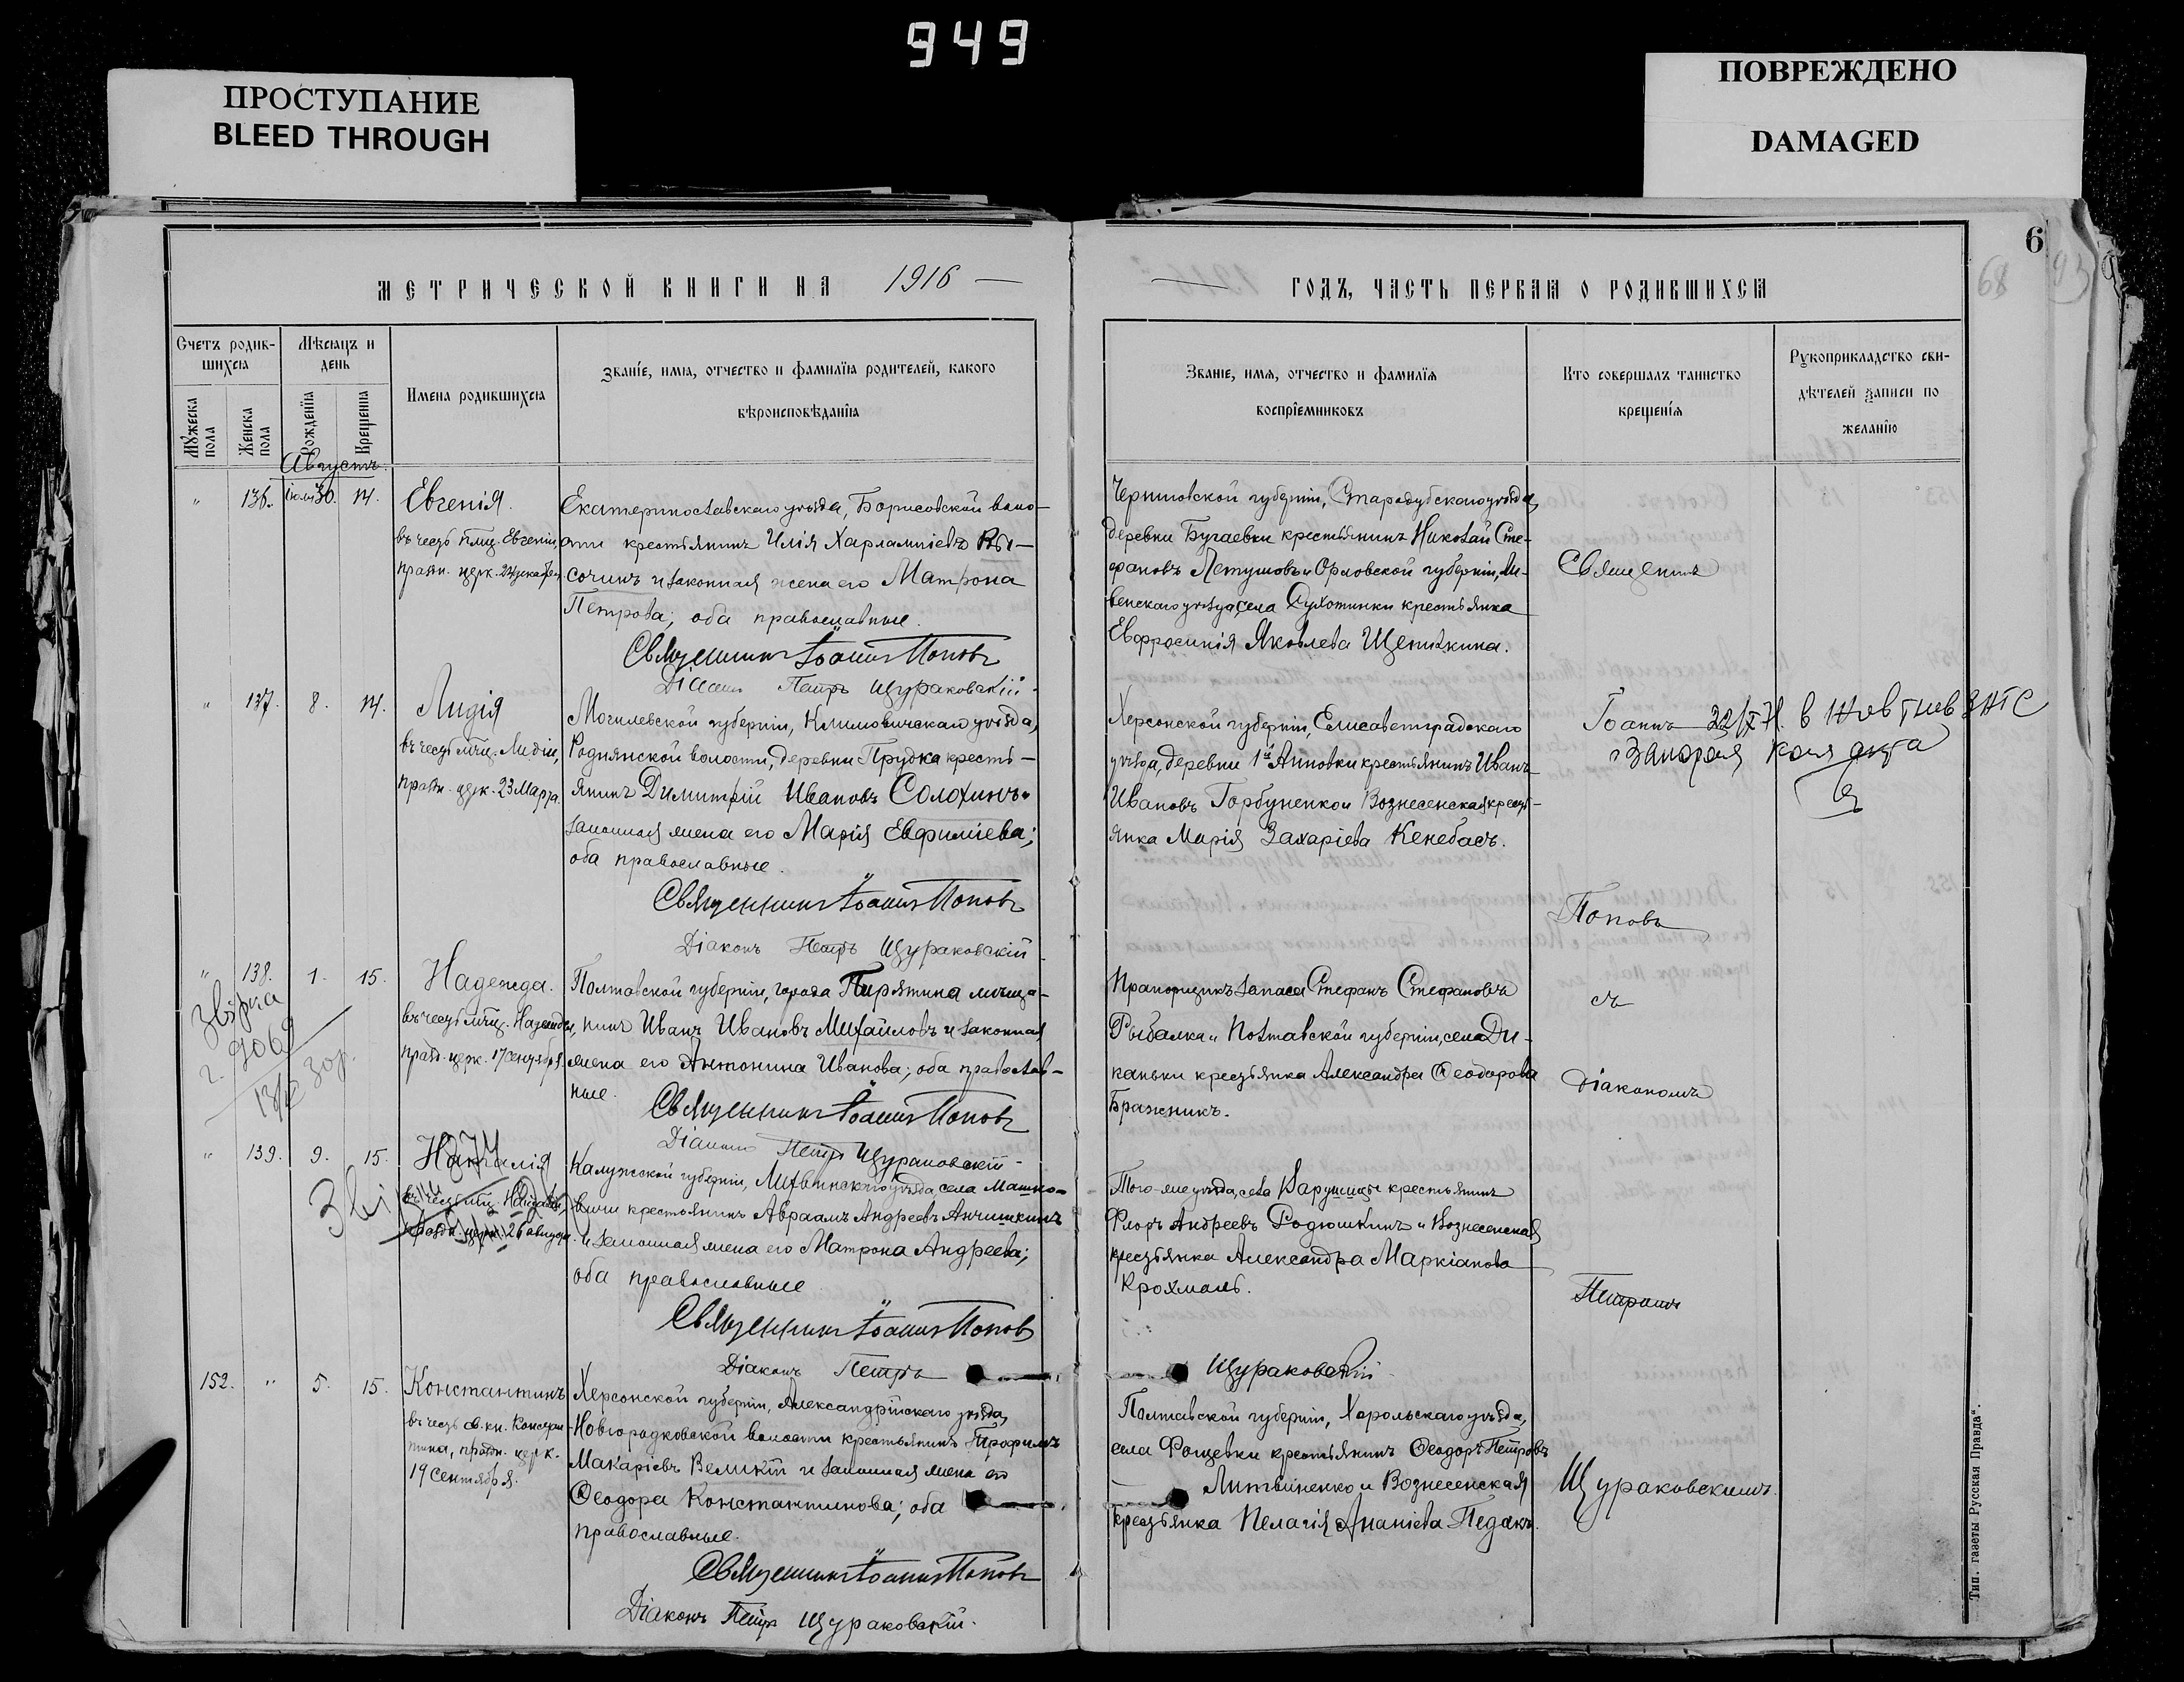 949
ПРОСТУПАНИЕ
BLEED THROUGH
ПОВРЕЖДЕНО
DAMAGED
6
68
93
МЕТРИЧЕСКОЙ КНИГИ НА 1916
ГОДЪ, ЧАСТЬ ПЕРВАЯ О РОДИВШИХСЯ
Счетъ родив-
шихся
Мѣсяцъ и
день
Мужеска
пола
Женска
пола
Рожденїя
Крещенїя
Имена родившихся
Званїе, имя, отчество и фамилїя родителей, какого
вѣроисповѣданїя
Званїе, имя, отчество и фамилїя
воспрїемниковъ
Кто совершалъ таинство
крещенїя
Рукоприкладство сви-
дѣтелей записи по
желанїю
Августъ.
" 136. Іюля 30. 14.
Евгенія.
въ честь пмц. Евгеніи,
праздн. церк. 24 декабря.
Екатеринославскаго уѣзда, Борисовской воло-
сти крестьянинъ Илія Харлампіевъ Вы-
сочинъ и законная жена его Матрона
Петрова; оба православные.
Священникъ Іоаннъ Поповъ
Діаконъ Петръ Щураковскій.
Черниговской губерніи, Стародубскаго уѣзда,
деревни Бугаевки крестьянинъ Николай Сте-
фановъ Летушовъ и Орловской губерніи, Ли-
венскаго уѣзда, села Сухотинки крестьянка
Евфросинія Яковлева Щепилкина.
Священникъ
" 137. 8. 14.
Лидія
въ честь мчц. Лидіи,
праздн. церк. 23 Марта.
Могилевской губерніи, Климовичскаго уѣзда,
Роднянской волости, деревни Прудка кресть-
янинъ Димитрій Ивановъ Солохинъ и
законная жена его Марія Евфиміева;
оба православные.
Священникъ Іоаннъ Поповъ
Діаконъ Петръ Щураковскій
Херсонской губерніи, Елисаветградскаго
уѣзда, деревни 1й Анновки крестьянинъ Иванъ
Ивановъ Горбуненко и Вознесенская кресть-
янка Марія Захаріева Кенебасъ.
Іоаннъ
Поповъ
" 138. 1. 15.
Надежда.
въ честь мчц. Надежды,
праздн. церк. 17 сентября.
Полтавской губерніи, города Пирятина мѣща-
нинъ Иванъ Ивановъ Михайловъ и законная
жена его Антонина Иванова; оба православ-
ные.
Священникъ Іоаннъ Поповъ
Діаконъ Петръ Щураковскій.
Прапорщикъ запаса Стефанъ Стефановъ
Рыбалка и Полтавской губерніи, села Ди-
каньки крестьянка Александра Ѳеодорова
Бражникъ.
съ
Діакономъ
" 139. 9. 15.
Наталія
въ честь мчц. Наталіи,
праздн. церк. 26 августа.
Калужской губерніи, Лихвинскаго уѣзда, села Машко-
вичи крестьянинъ Авраамъ Андреевъ Анчишкинъ
и законная жена его Матрона Андреева;
оба православные
Священникъ Іоаннъ Поповъ
Діаконъ Петръ Щураковскій.
Того-же уѣзда, села Варушицы крестьянинъ
Флоръ Андреевъ Родюшкинъ и Вознесенская
крестьянка Александра Маркіанова
Крохмаль.
Петромъ
152. " 5. 15.
Константинъ
въ честь св. кн. Констан-
тина, праздн. церк.
19 Сентября.
Херсонской губерніи, Александрійскаго уѣзда,
Новгородковской волости крестьянинъ Трофимъ
Макаріевъ Великій и законная жена его
Ѳеодора Константинова; оба
православные.
Священникъ Іоаннъ Поповъ
Діаконъ Петръ Щураковскій.
Полтавской губерніи, Хорольскаго уѣзда,
села Фощевки крестьянинъ Ѳеодоръ Петровъ
Литвиненко и Вознесенская
крестьянка Пелагія Ананіева Педакъ.
Щураковскимъ.
Тип. газеты „Русская Правда“.